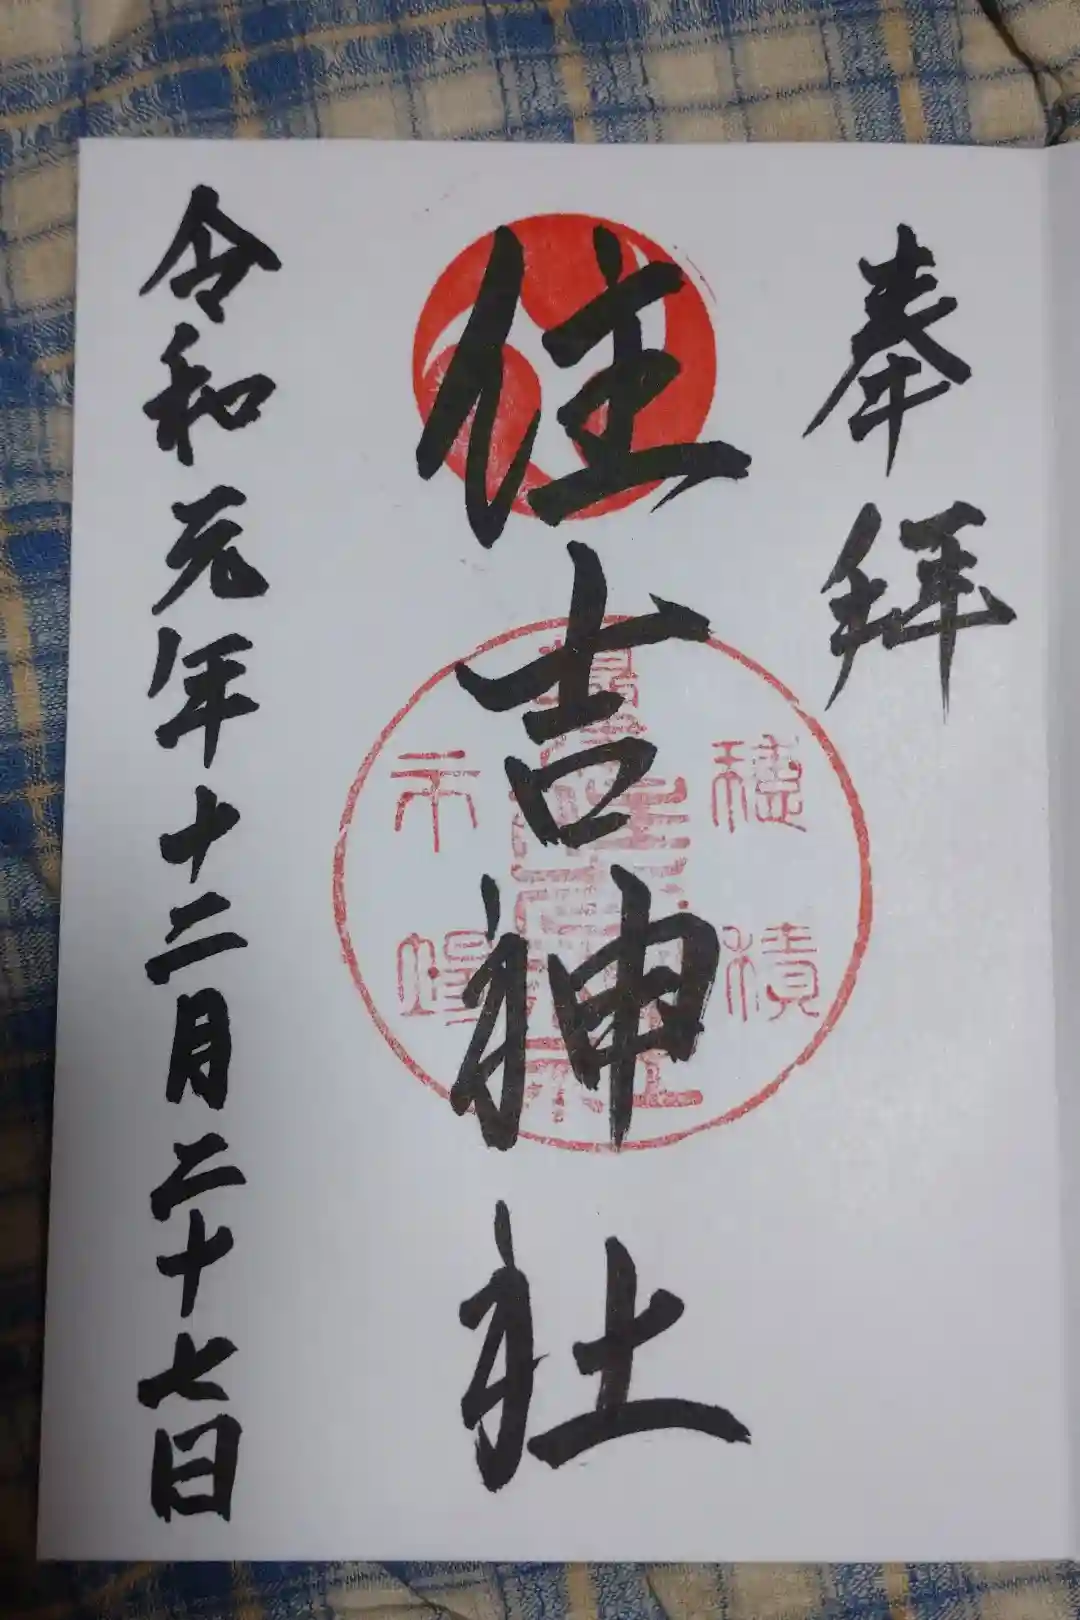 奉拝
住吉神社
穂積
市場
令和元年十二月二十七日